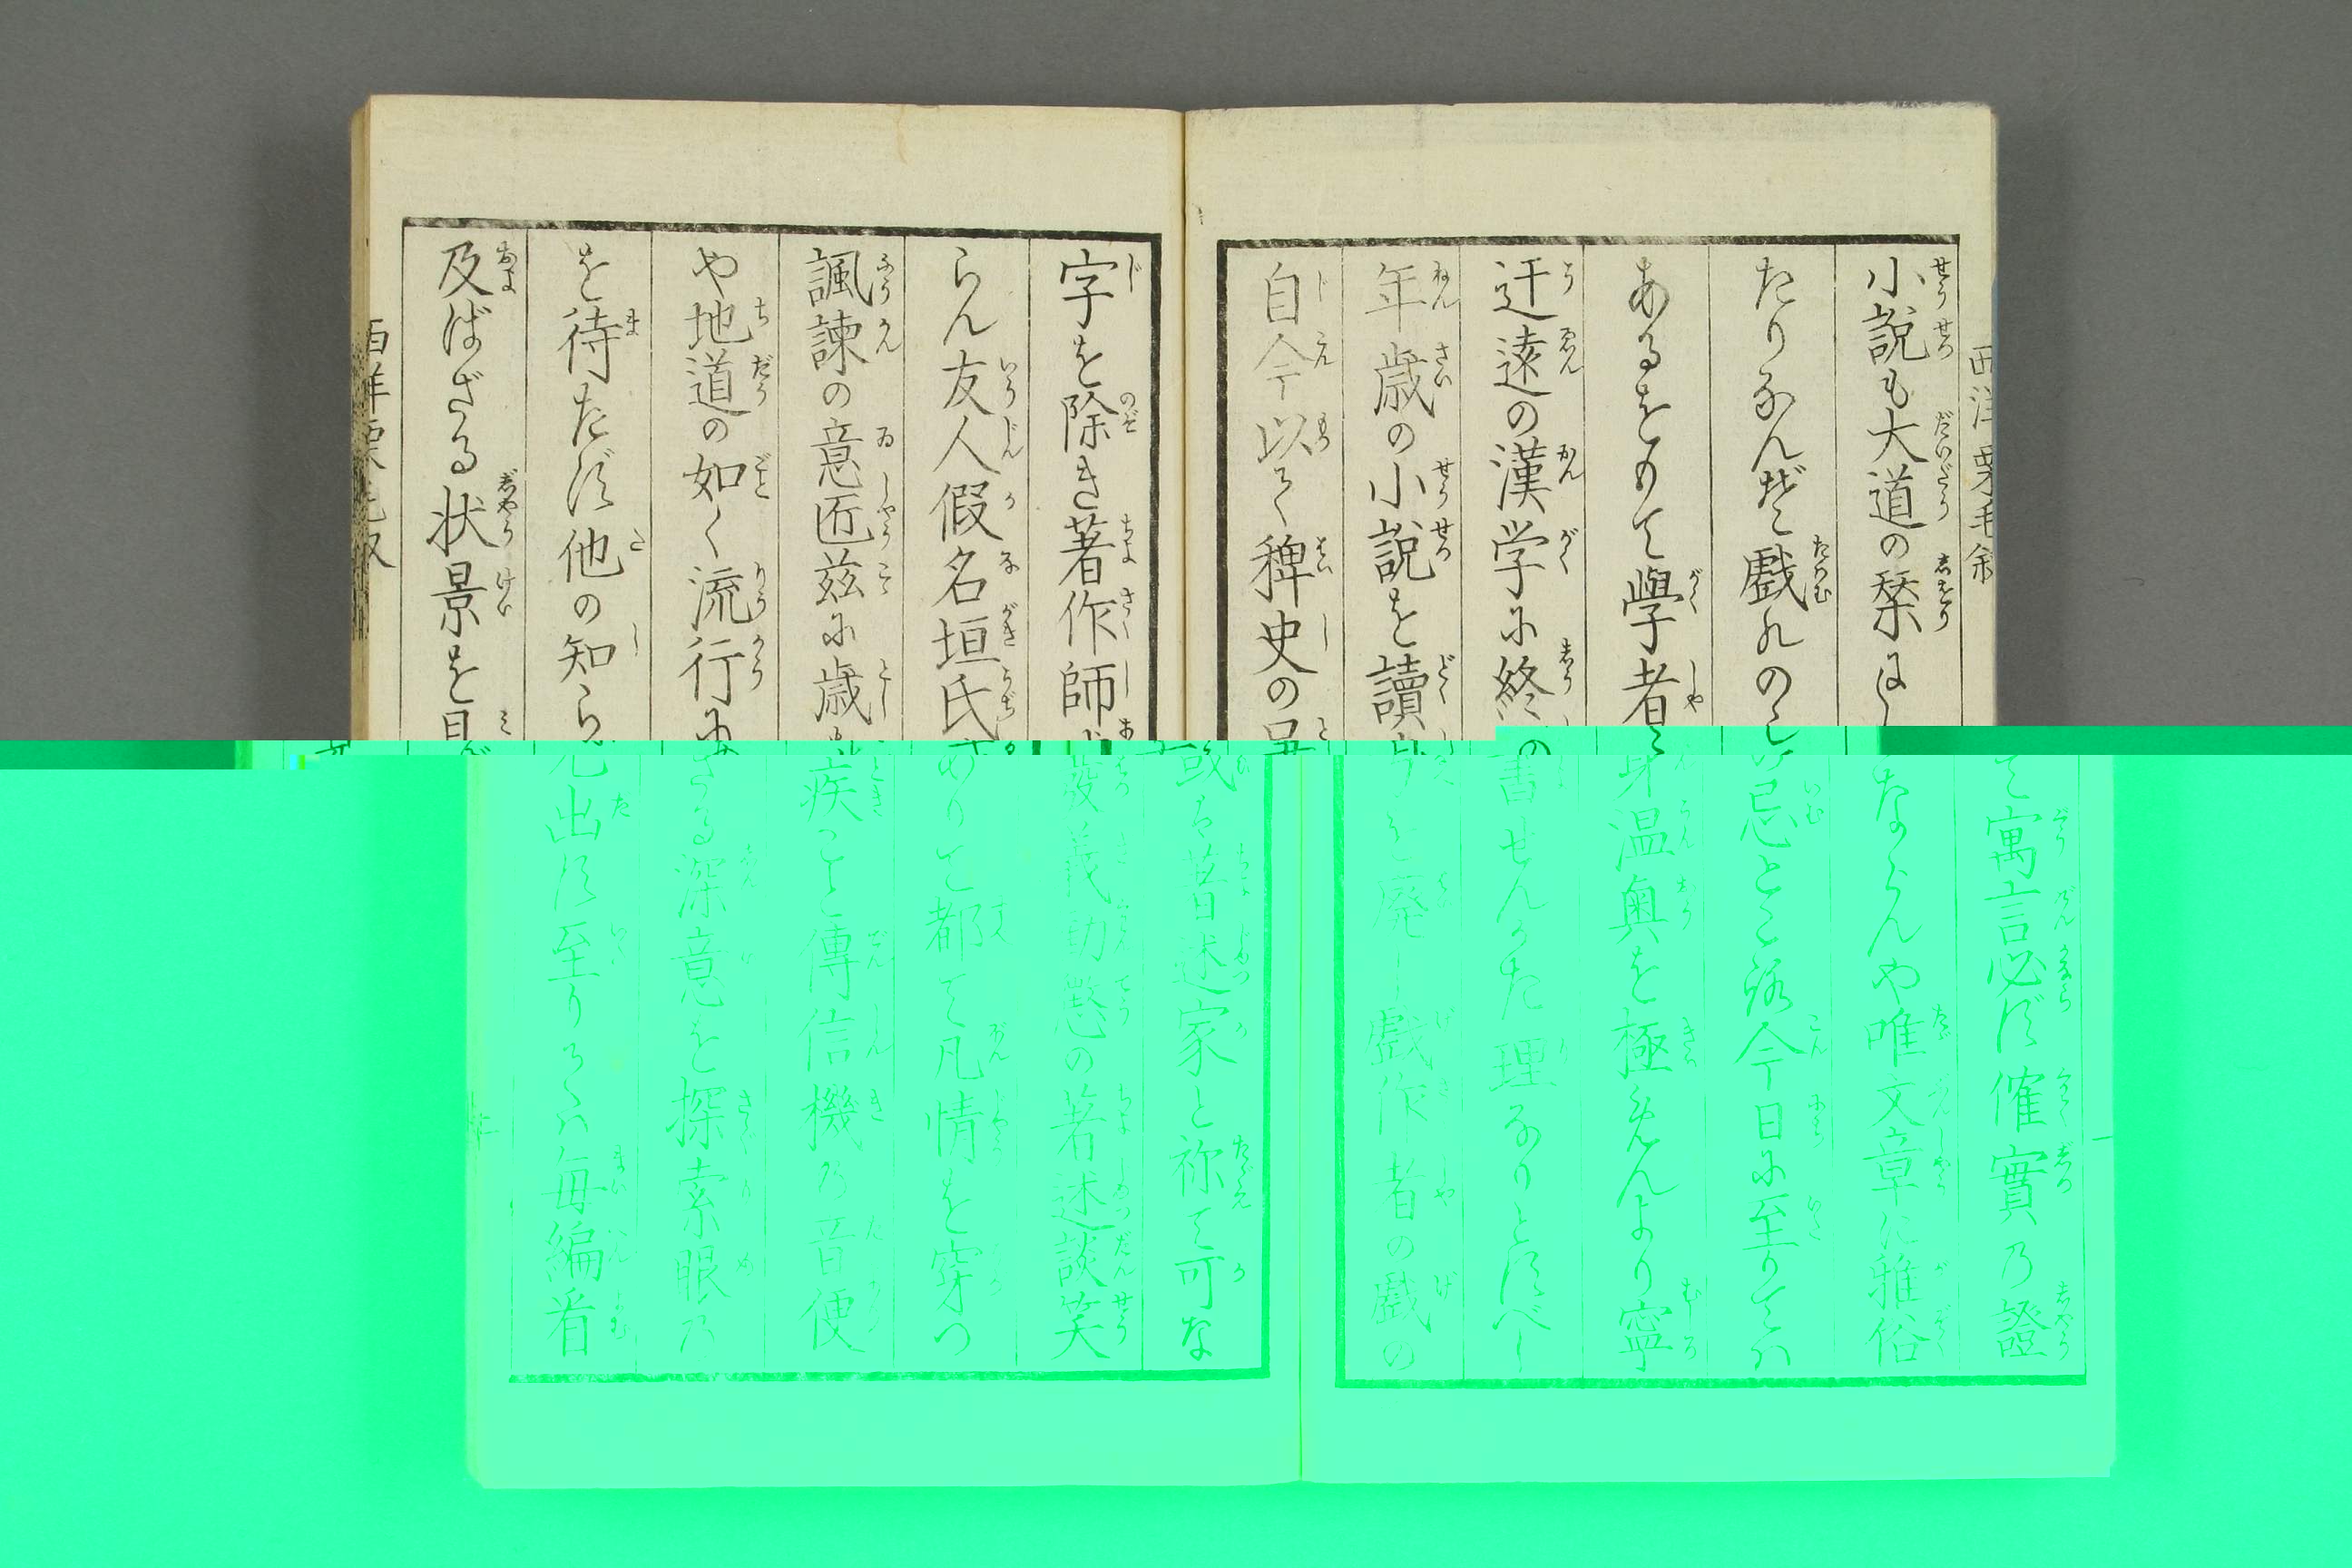 西洋栗毛叙
小説も大道の栞にして寓言必ず催實乃證
たりなんぞ戯れのミならんや唯文章に雅俗
あるをもて學者 忌ところ今日に至りてハ
迂遠の漢学に終身温奥を極めんより寧
年歳の小説を讀 書せん た理なりとすべし
自今以て稗史の号を廃し戯作者の戯の
字を除き著作師或ハ著述家と称て可な
らん友人假名垣氏發義勧懲の著述談笑
諷諫の意匠茲に歳ありて都て凡情を穿つ
や地道の如く流行に疾こと傳信機乃音便
を待たず他の知らざる深意を探索眼乃
及ばざる状景を見出す至りてハ毎編看
西洋栗毛叙